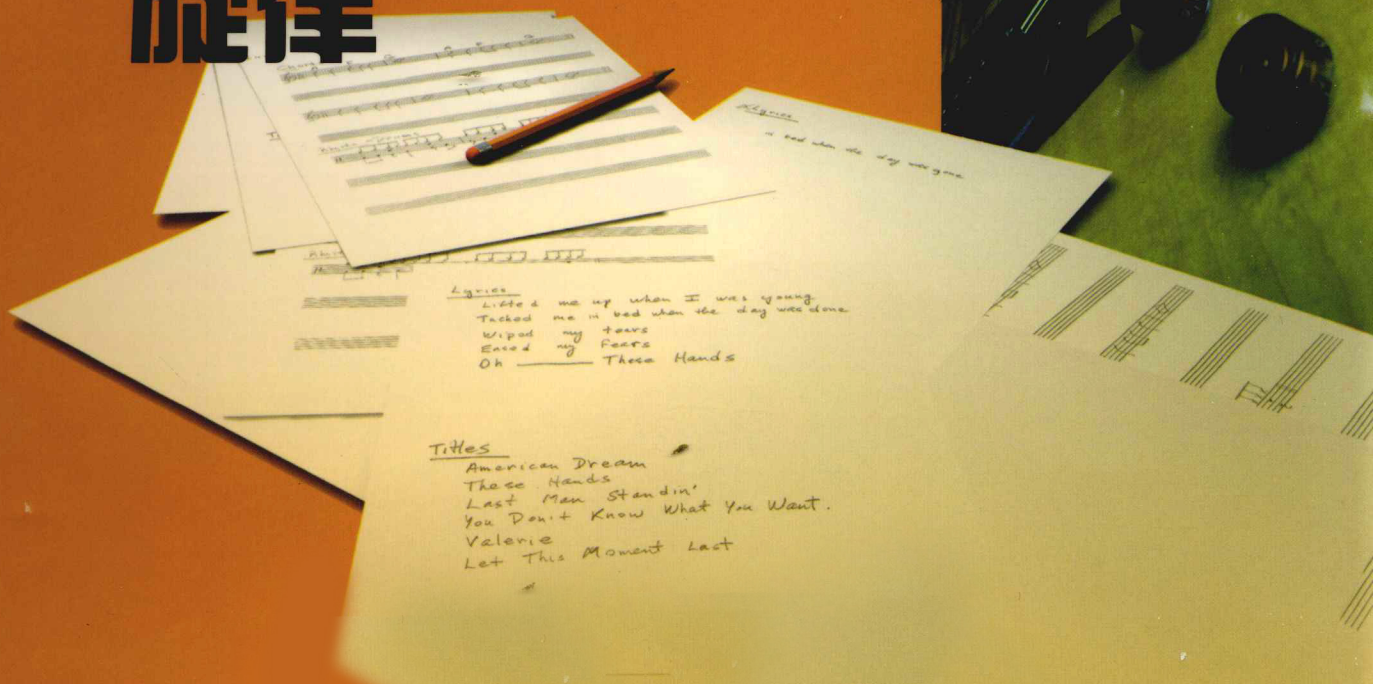 旋律
Chorus
Lyrics
in bed when the day was gone
Lyrics
Lifted me up when I was young
Tucked me in bed when the day was done
Wiped my tears
Eased my Fears
Oh ——— These Hands
Titles
American Dream
These Hands
Last Man Standin'
You Don't Know What You Want.
Valerie
Let This Moment Last